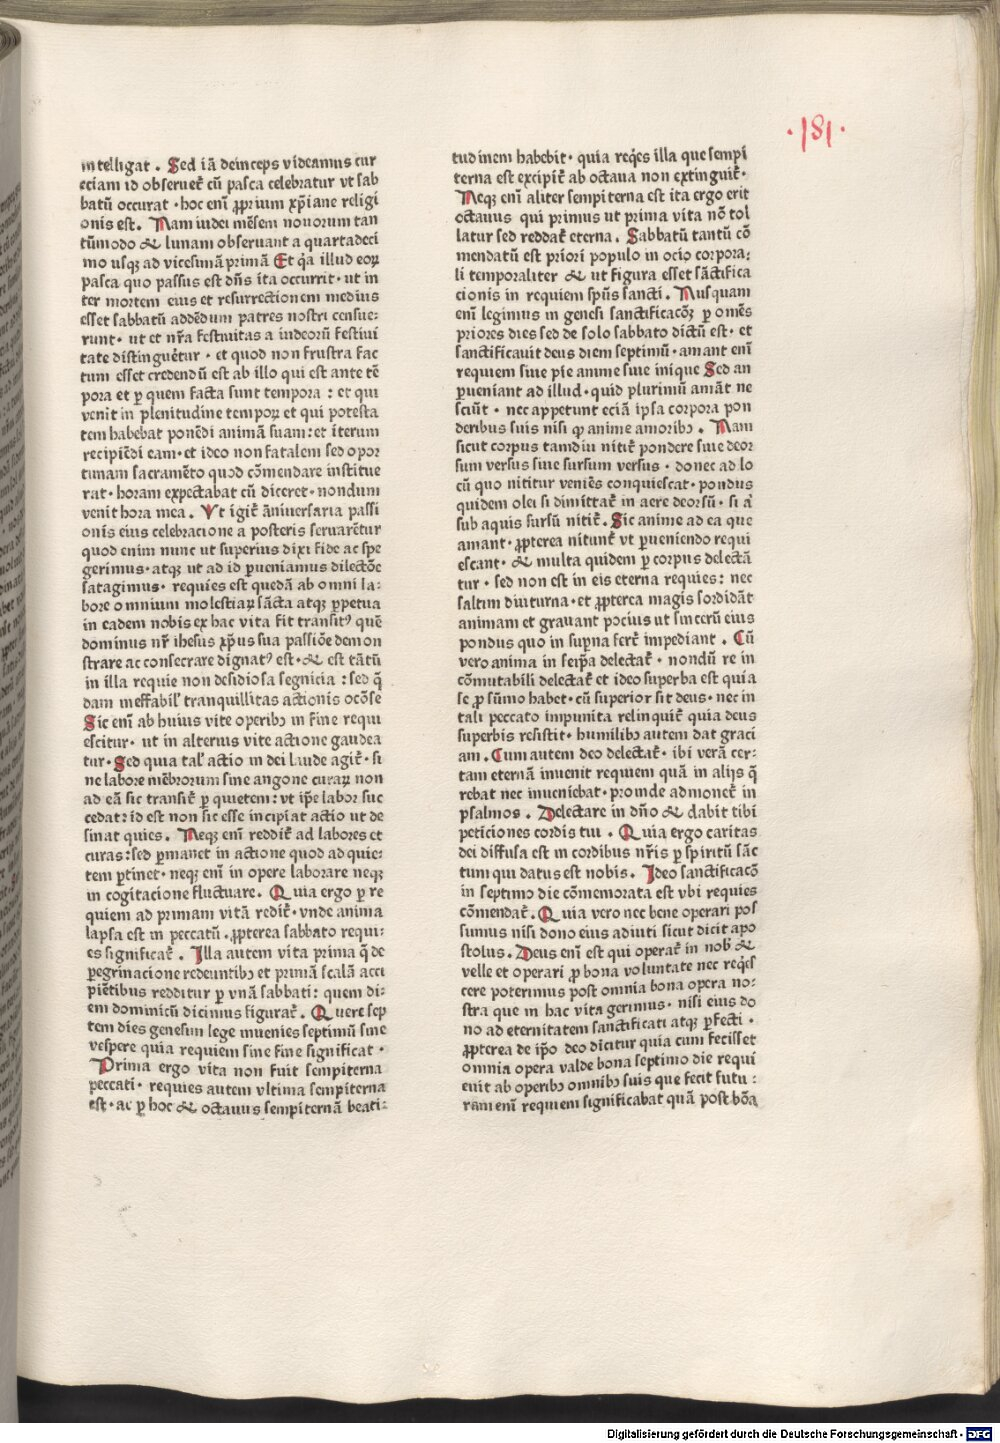 ·181·
intelligat . Sed iā deinceps videamus cur
eciam id obseruet᷑ cū pasca celebratur vt sab
batū occurat · hoc enī ꝓprium xp̄iane religi
onis est . Nam iudei mēsem nouorum tan
tūmodo & lunam obseruant a quartadeci
mo usqꝫ ad vicesimā primā Et q̇a illud eoꝝ
pasca quo passus est dn̄s ita occurrit · ut in
ter mortem eius et resurrectionem medius
esset sabbatū addēdum patres nostri censue⸗
runt · ut et nr̄a festiuitas a iudeorū festiui
tate distinguēretur · et quod non frustra fac
tum esset credendū est ab illo qui est ante tē
pora et ꝑ quem facta sunt tempora : et qui
venit in plenitudine tempoꝝ et qui potesta
tem habebat ponēdi animā suam : et iterum
recipiēdi eam · et ideo non fatalem sed opor
tunam sacramēto quod cōmendare institue
rat · horam expectabat cū diceret · nondum
venit hora mea . Vt igit᷑ āniuersaria passi
onis eius celebracione a posteris seruarētur
quod enim nunc ut superius dixi fide ac spe
gerimus · atqꝫ ut ad id ꝑueniamus dilectōe
satagimus · requies est quedā ab omni la⸗
bore omnium molestiaꝝ sācta atqꝫ ꝑpetua
in eadem nobis ex hac vita fit transitꝰ quē
dominus nr̄ ihesus xp̄us sua passiōe demon
strare ac consecrare dignatꝰ est · & est tātū
in illa requie non desidiosa segnicia : sed q̄
dam ineffabil̛ tranquillitas actionis ocōse
Sic enī ab huius vite operibꝫ in fine requi
escitur · ut in alterius vite actione gaudea
tur · Sed quia tal̛ actio in dei laude agit᷑ · si
ne labore mēbrorum sine angore curaꝝ non
ad eā sic transit᷑ ꝑ quietem : vt ip̄e labor suc
cedat : id est non sic esse incipiat actio ut de
sinat quies . Neqꝫ enī reddit᷑ ad labores et
curas : sed ꝑmanet in actione quod ad quie⸗
tem ꝑtinet · neqꝫ enī in opere laborare neqꝫ
in cogitacione fluctuare . Quia ergo ꝑ re
quiem ad primam vitā redit᷑ · vnde anima
lapsa est in peccatū . ꝓpterea sabbato requi⸗
es significat᷑ . Illa autem vita prima q̄ de
ꝑegrinacione redeuntibꝫ et primā scalā acci
piētibus redditur ꝑ vnā sabbati : quem di⸗
em dominicū dicimus figurat᷑ . Quere sep
tem dies genesim lege inuenies septimū sine
vespere quia requiem sine fine significat ·
Prima ergo vita non fuit sempiterna
peccati · requies autem vltima sempiterna
est · ac ꝑ hoc & octauus sempiternā beati⸗
tudinem habebit · quia req̇es illa que sempi
terna est excipit᷑ ab octaua non extinguit᷑ ·
Neqꝫ enī aliter sempiterna est ita ergo erit
octauus qui primus ut prima vita nō tol
latur sed reddat᷑ eterna . Sabbatū tantū cō
mendatū est priori populo in ocio corpora⸗
li temporaliter & ut figura esset sāctifica
cionis in requiem spūs sancti . Nusquam
enī legimus in genesi sanctificacōꝫ ꝑ omēs
priores dies sed de solo sabbato dictū est · et
sanctificauit deus diem septimū · amant enī
requiem siue pie anime siue inique Sed an
ꝑueniant ad illud · quid plurimū amāt ne
sciūt · nec appetunt eciā ipsa corpora pon
deribus suis nisi qꝫ anime amoribꝫ . Nam
sicut corpus tamdiu nitit᷑ pondere siue deor
sum versus siue sursum versus · donec ad lo
cū quo nititur veniēs conquiescat · pondus
quidem olei si dimittat᷑ in aere deorsū · si ā
sub aquis sursū nitit᷑ . Sic anime ad ea que
amant · ꝓpterea nitunt᷑ vt ꝑueniendo requi
escant · & multa quidem ꝑ corpus delectā
tur · sed non est in eis eterna requies : nec
saltim diuturna · et ꝓpterea magis sordidāt
animam et grauant pocius ut sincerū eius
pondus quo in suꝑna fert᷑ impediant . Cū
vero anima in seip̄a delectat᷑ · nondū re in
cōmutabili delectat᷑ et ideo superba est quia
se ꝓ sūmo habet · cū superior sit deus · nec in
tali peccato impunita relinquit᷑ quia deus
superbis resistit · humilibꝫ autem dat graci
am . Cum autem deo delectat᷑ · ibi verā cer⸗
tam eternā inuenit requiem quā in alijs q̄
rebat nec inueniebat · proinde admonet᷑ in
psalmos . Delectare in dn̄o & dabit tibi
peticiones cordis tui . Quia ergo caritas
dei diffusa est in cordibus nr̄is ꝑ spiritū sāc
tum qui datus est nobis . Ideo sanctificacō
in septimo die cōmemorata est vbi requies
cōmendat᷑ . Quia vero nec bene operari pos
sumus nisi dono eius adiuti sicut dicit apo
stolus . Deus enī est qui operat᷑ in nob̛ &
velle et operari ꝓ bona voluntate nec req̇es
cere poterimus post omnia bona opera no⸗
stra que in hac vita gerimus · nisi eius do
no ad eternitatem sanctificati atqꝫ ꝑfecti ·
ꝓpterea de ip̄o deo dicitur quia cum fecisset
omnia opera valde bona septimo die requi
euit ab operibꝫ omnibꝫ suis que fecit futu :
ram enī requiem significabat quā post bōa
Digitalisierung gefördert durch die Deutsche Forschungsgemeinschaft · DFG